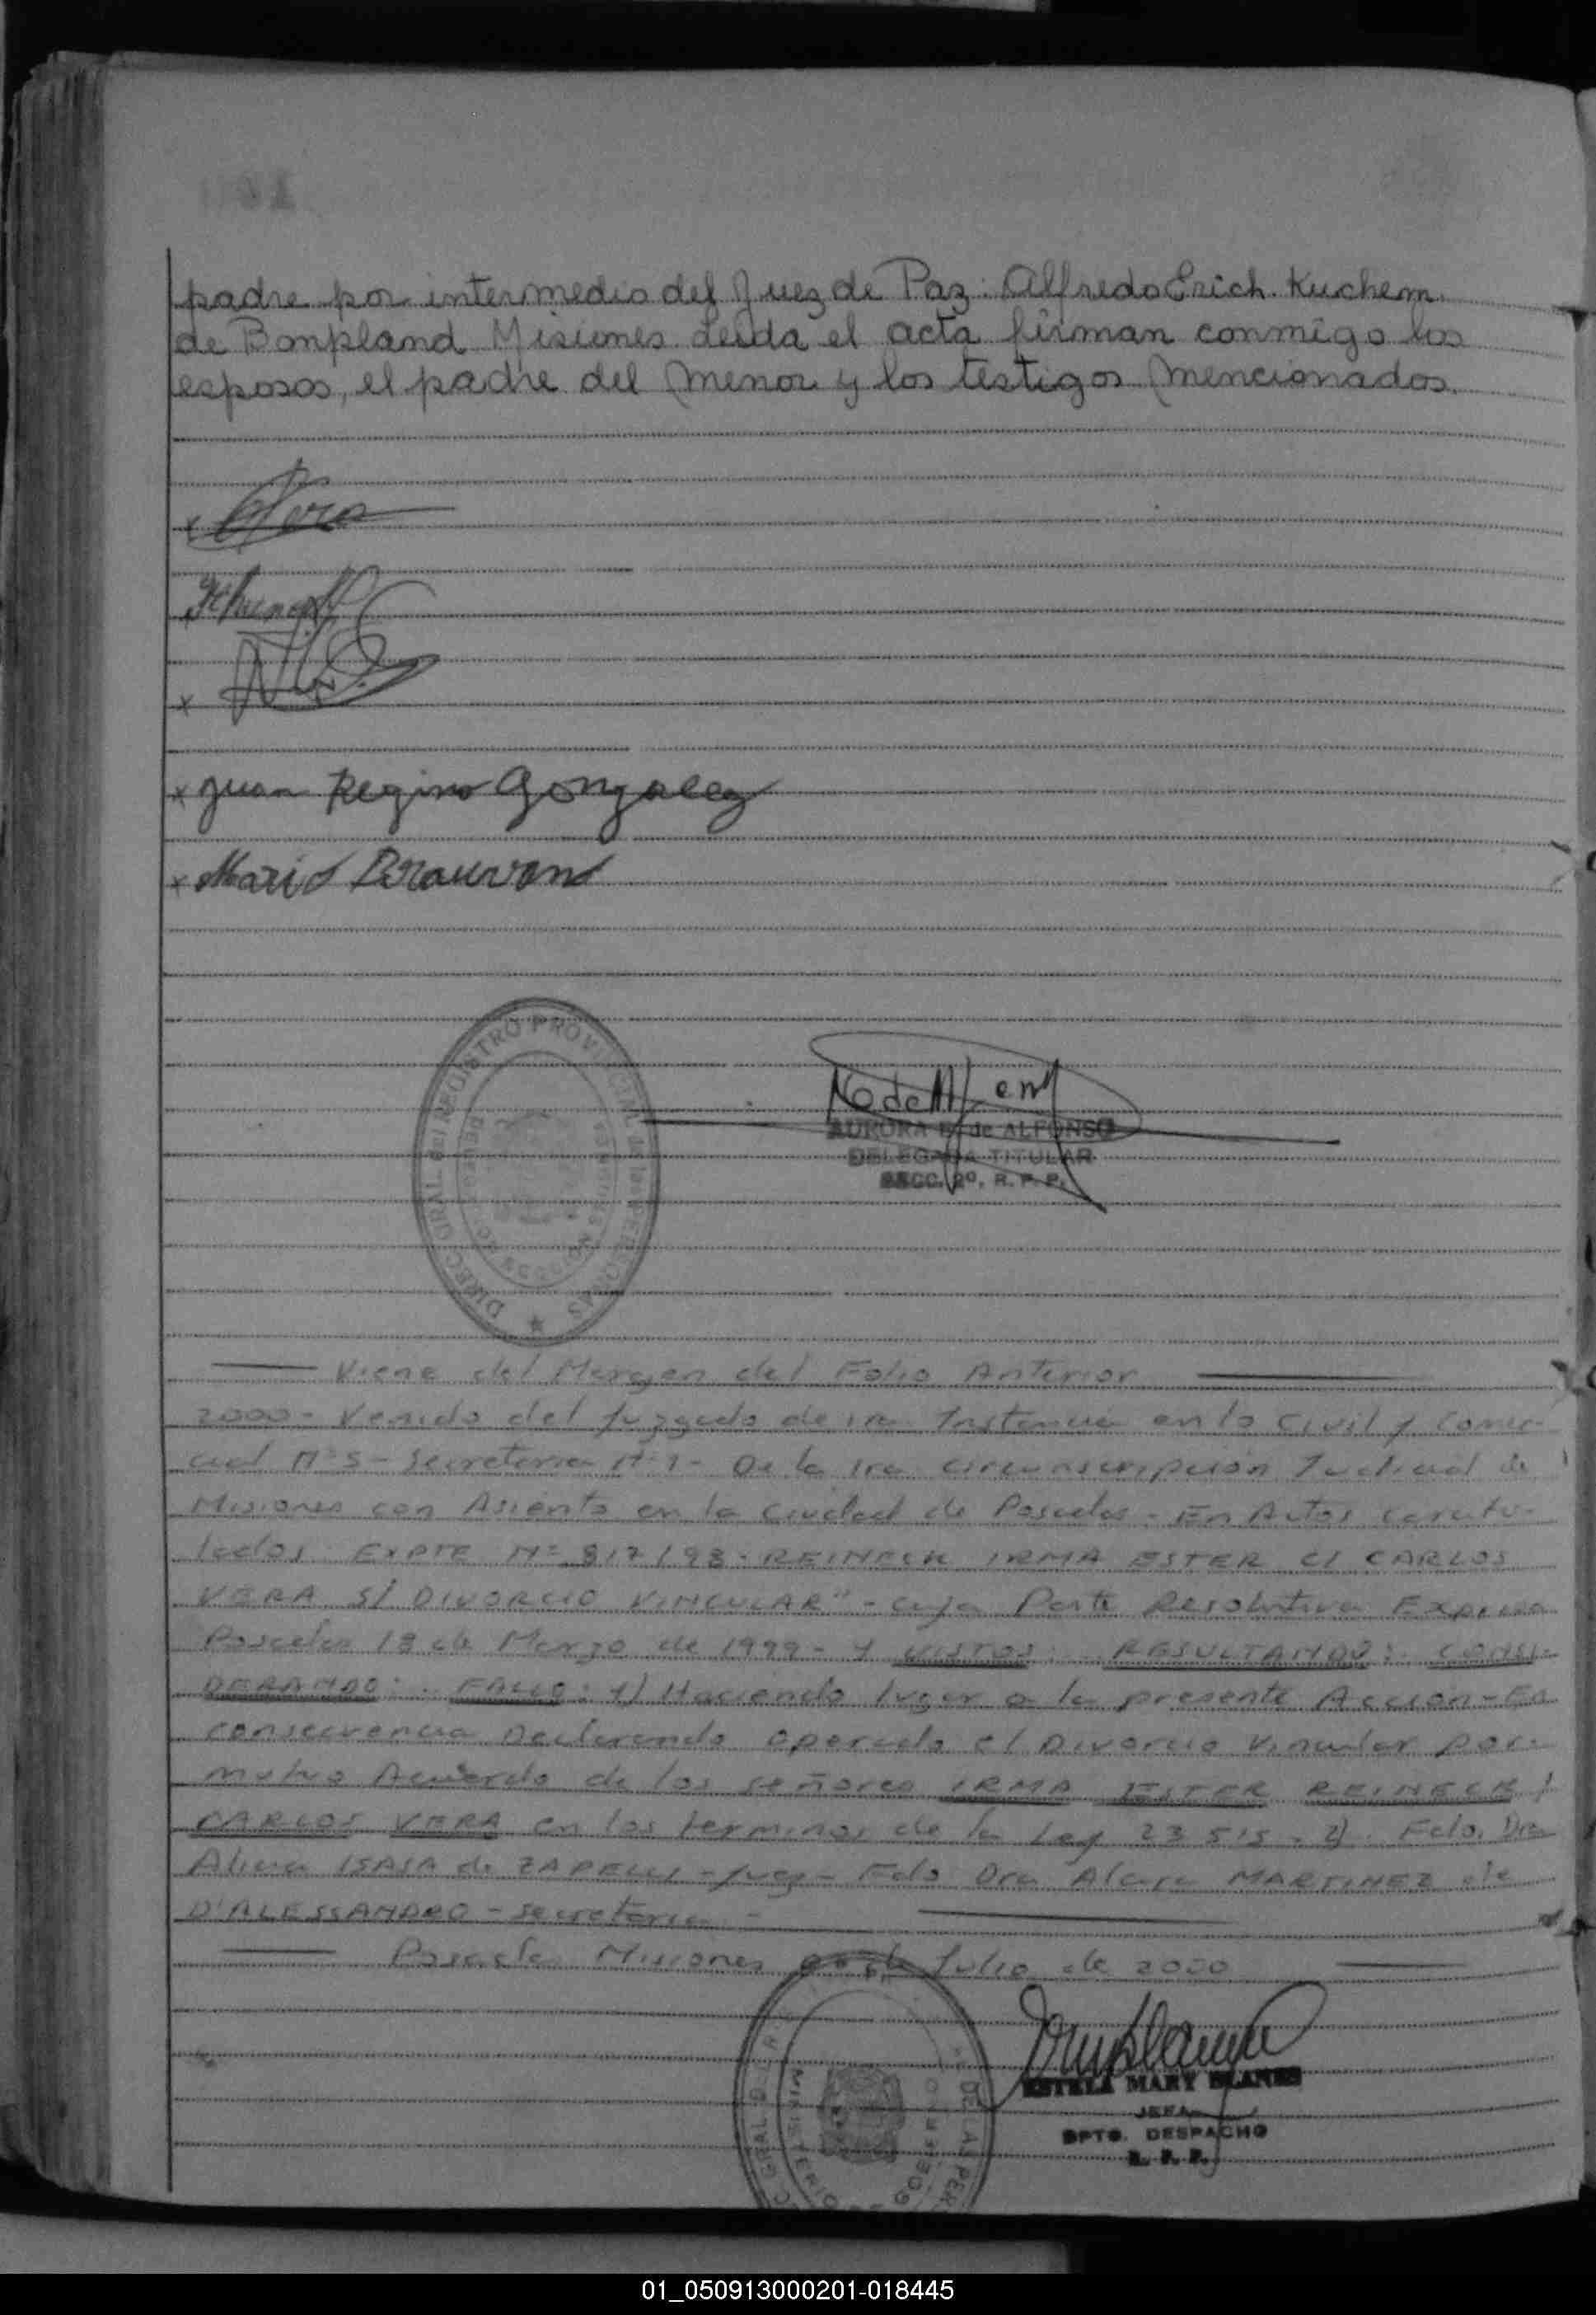 padre por intermedio del Juez de Paz: Alfredo Erich Kuchem.
de Bonpland Misiones. Leida el acta firman conmigo los
esposos, el padre del menor y los testigos mencionados.
x
x
x Juan Regino Gonzalez
x Mario
DIREC. GRAL del REGISTRO PROVINCIAL de las PERSONAS
AURORA de ALFONSO
DELEGADA TITULAR
SECC. 2º. R. P. P.
Viene del Margen del Folio Anterior
2000 - Venido del Juzgado de 1ra Instancia en lo Civil y Comer-
cial Nº 5 - Secretaria Nº 1 - De la 1ra Circunscripción Judicial de
Misiones con Asiento en la Ciudad de Posadas - En Autos caratu-
lados EXPTE Nº 817/98 - REINECK IRMA ESTER C/ CARLOS
VERA S/ DIVORCIO VINCULAR" - cuya Parte Resolutiva Expresa
Posadas 18 de Marzo de 1999 - Y VISTOS: RESULTANDO: CONSI-
DERANDO: FALLO: 1) Haciendo lugar a la presente Acción - En
consecuencia Declarando operado el Divorcio Vincular por
mutuo Acuerdo de los señores IRMA ESTER REINECK y
CARLOS VERA en los terminos de la Ley 23 515 - 2) Fdo. Dra
Alicia ISASA de ZAPELLI - Juez - Fdo Dra MARTINEZ de
D'ALESSANDRO - Secretaria -
Posadas Misiones de Julio de 2000
ESTELA MARY BLANES
JEFA
DPTO. DESPACHO
R. P. P.
01_050913000201-018445